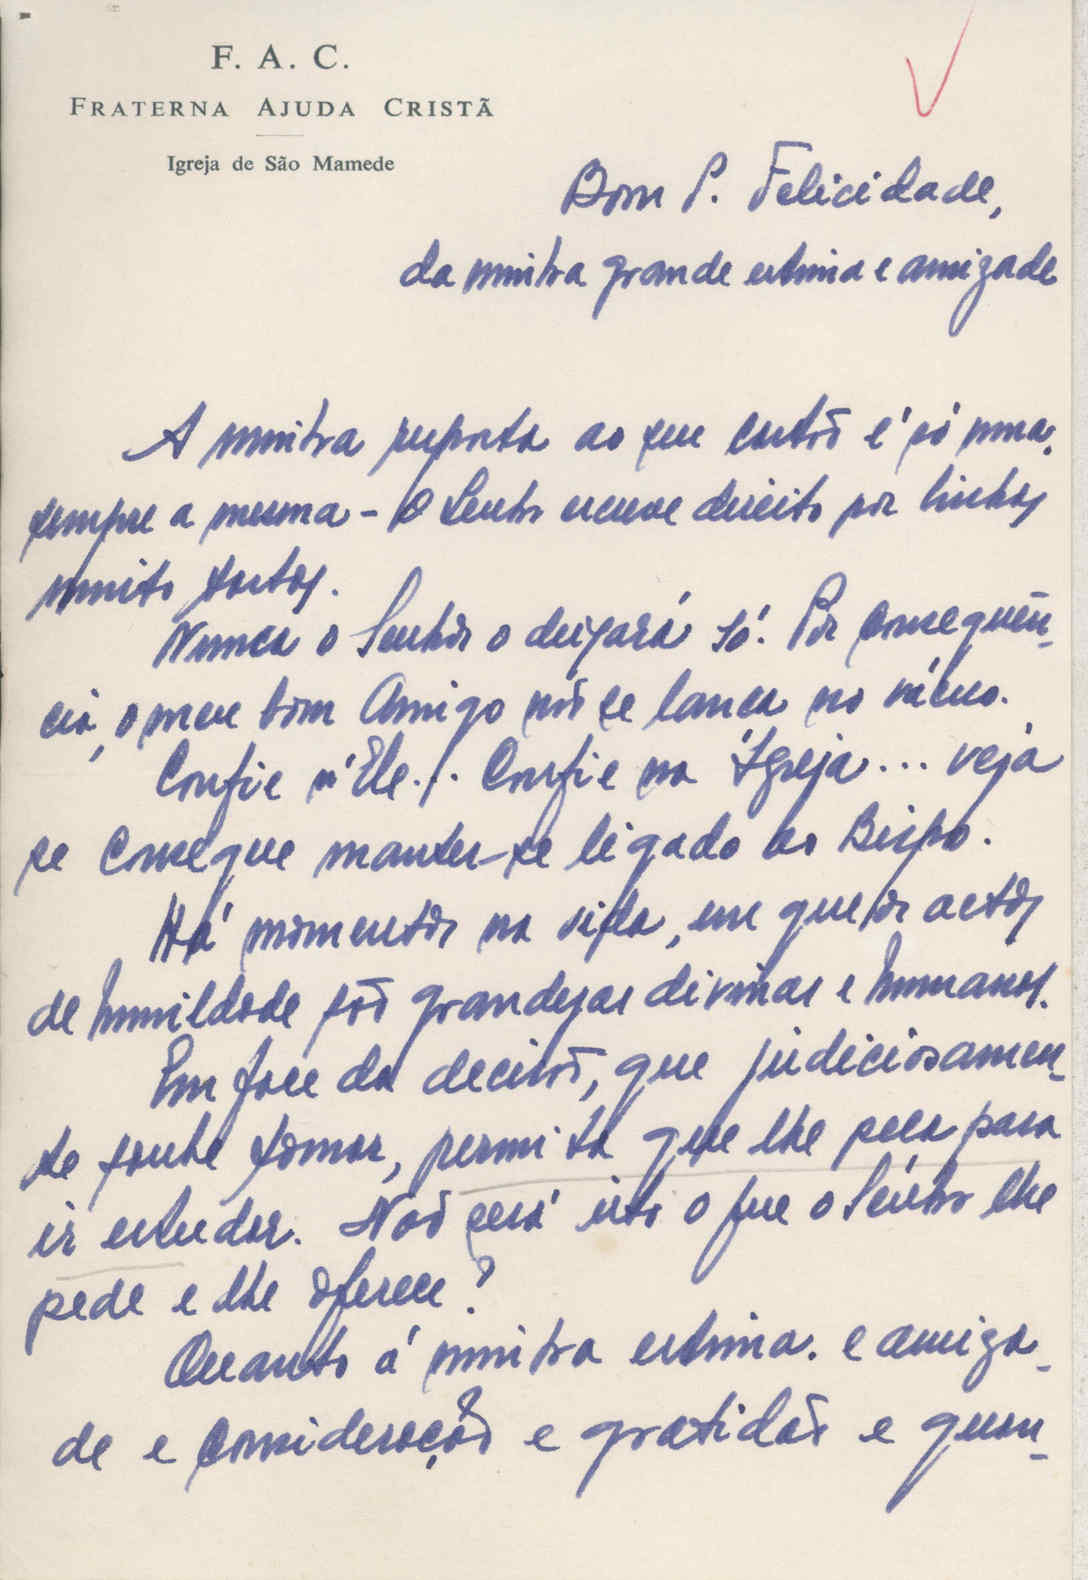 F. A. C.
FRATERNA AJUDA CRISTÃ
Igreja de São Mamede
Bom P. Felicidade,
da minha grande estima e amizade
A minha resposta ao seu cartão é só uma,
sempre a mesma - O Senhor escreve direito por linhas
muito tortas.
Nunca o Senhor o deixará só. Por consequên-
cia, o meu bom Amigo não se lança no vácuo.
Confie n'Ele./. Confie na Igreja... veja
se consegue manter-se ligado ao Bispo.
Há momentos na vida, em que os actos
de humildade são grandezas divinas e humanas.
Em face da decisão, que judiciosamen-
te soube tomar, permita que lhe peça para
ir estudar. Não será isto o que o Senhor lhe
pede e lhe oferece?
Quanto á minha estima. e amiza-
de e consideração e gratidão e quan-